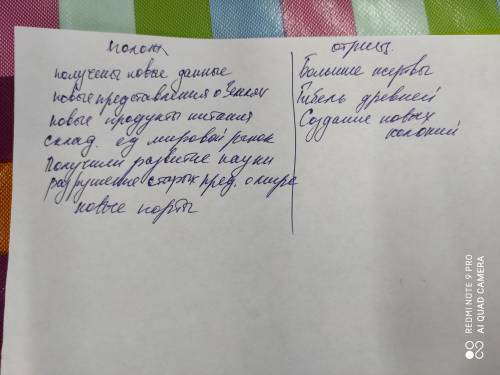 полож
получены новые данные
новые представления о Земли
новые продукты питания
склад. ед мировой рынок
Получили развитие науки
разрушение старых пред. о мире
новые порты
отриц.
Большие жертвы
Гибель древней
Создание новых
колоний
REDMI NOTE 9 PRO
AI QUAD CAMERA